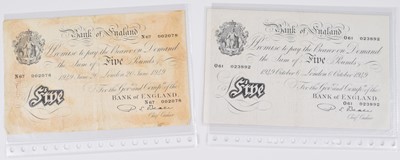 Bank of England
N67 002078
I Promise to pay the Bearer on Demand
the Sum of Five Pounds
1949 June 20 London 20 June 1949
For the Gov: and Comp: of the
BANK of ENGLAND.
Five
N67 002078
Chief Cashier
Bank of England
O61 023892
I Promise to pay the Bearer on Demand
the Sum of Five Pounds
October 6 London 6 October
For the Gov: and Comp: of the
BANK of ENGLAND.
Five
O61 023892
Chief Cashier